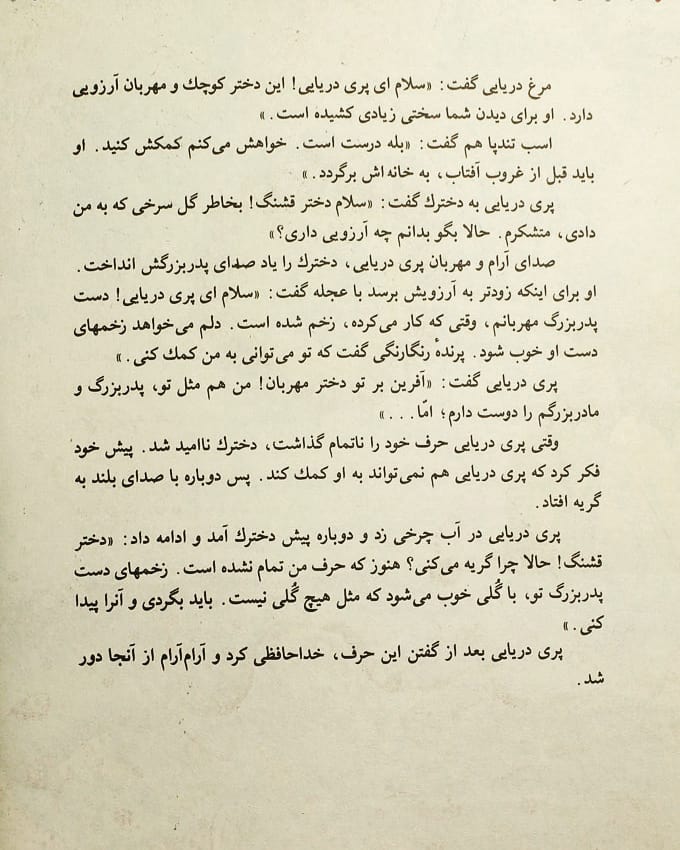 مرغ دریایی گفت: «سلام ای پری دریایی! این دختر کوچك و مهربان آرزویی
دارد. او برای دیدن شما سختی زیادی کشیده است.»
اسب تندپا هم گفت: «بله درست است. خواهش می‌کنم کمکش کنید. او
باید قبل از غروب آفتاب، به خانه‌اش برگردد.»
پری دریایی به دخترك گفت: «سلام دختر قشنگ! بخاطر گل سرخی که به من
دادی، متشکرم. حالا بگو بدانم چه آرزویی داری؟»
صدای آرام و مهربان پری دریایی، دخترك را یاد صدای پدربزرگش انداخت.
او برای اینکه زودتر به آرزویش برسد با عجله گفت: «سلام ای پری دریایی! دست
پدربزرگ مهربانم، وقتی که کار می‌کرده، زخم شده است. دلم می‌خواهد زخمهای
دست او خوب شود. پرندهٔ رنگارنگی گفت که تو می‌توانی به من کمك کنی.»
پری دریایی گفت: «آفرین بر تو دختر مهربان! من هم مثل تو، پدربزرگ و
مادربزرگم را دوست دارم؛ امّا...»
وقتی پری دریایی حرف خود را ناتمام گذاشت، دخترك ناامید شد. پیش خود
فکر کرد که پری دریایی هم نمی‌تواند به او کمك کند. پس دوباره با صدای بلند به
گریه افتاد.
پری دریایی در آب چرخی زد و دوباره پیش دخترك آمد و ادامه داد: «دختر
قشنگ! حالا چرا گریه می‌کنی؟ هنوز که حرف من تمام نشده است. زخمهای دست
پدربزرگ تو، با گُلی خوب می‌شود که مثل هیچ گُلی نیست. باید بگردی و آنرا پیدا
کنی.»
پری دریایی بعد از گفتن این حرف، خداحافظی کرد و آرام‌آرام از آنجا دور
شد.